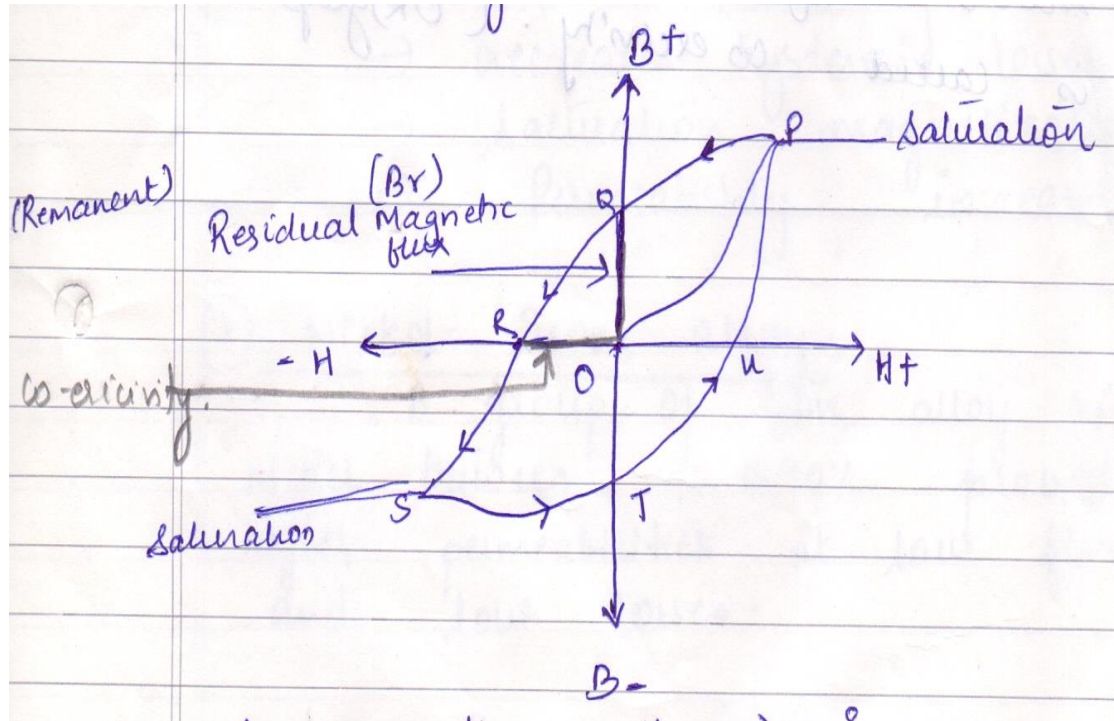 B+
P
Saturation
(Remanent)
(Br)
Residual Magnetic
flux
Q
R
- H
O
U
H+
Co-ericivity.
S
T
Saturation
B-